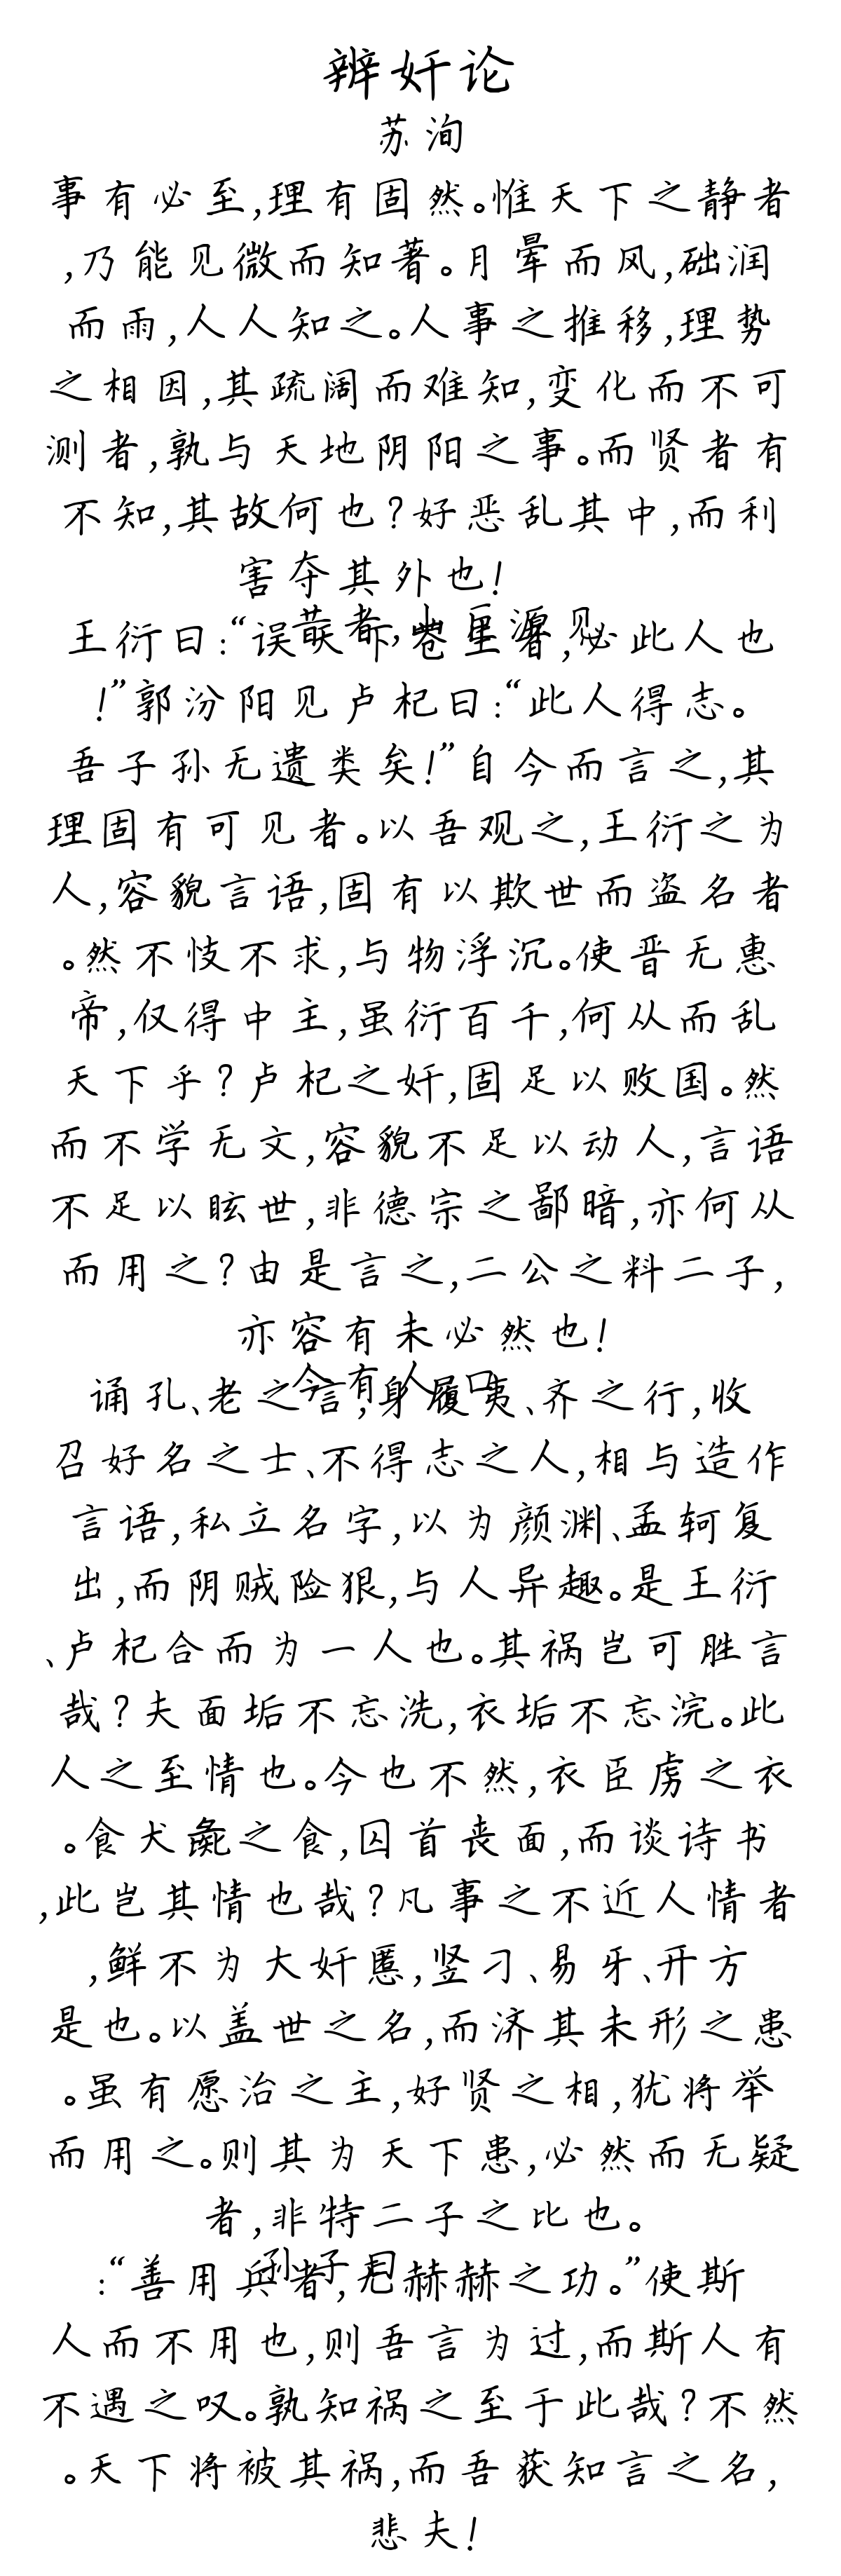 辨奸论
苏洵
事有必至,理有固然。惟天下之静者
,乃能见微而知著。月晕而风,础润
而雨,人人知之。人事之推移,理势
之相因,其疏阔而难知,变化而不可
测者,孰与天地阴阳之事。而贤者有
不知,其故何也?好恶乱其中,而利
害夺其外也!
昔者,山巨源见
王衍曰:“误天下苍生者,必此人也
!”郭汾阳见卢杞曰:“此人得志。
吾子孙无遗类矣!”自今而言之,其
理固有可见者。以吾观之,王衍之为
人,容貌言语,固有以欺世而盗名者
。然不忮不求,与物浮沉。使晋无惠
帝,仅得中主,虽衍百千,何从而乱
天下乎?卢杞之奸,固足以败国。然
而不学无文,容貌不足以动人,言语
不足以眩世,非德宗之鄙暗,亦何从
而用之?由是言之,二公之料二子,
亦容有未必然也!
今有人,口
诵孔、老之言,身履夷、齐之行,收
召好名之士、不得志之人,相与造作
言语,私立名字,以为颜渊、孟轲复
出,而阴贼险狠,与人异趣。是王衍
、卢杞合而为一人也。其祸岂可胜言
哉?夫面垢不忘洗,衣垢不忘浣。此
人之至情也。今也不然,衣臣虏之衣
。食犬彘之食,囚首丧面,而谈诗书
,此岂其情也哉?凡事之不近人情者
,鲜不为大奸慝,竖刁、易牙、开方
是也。以盖世之名,而济其未形之患
。虽有愿治之主,好贤之相,犹将举
而用之。则其为天下患,必然而无疑
者,非特二子之比也。
孙子曰
:“善用兵者,无赫赫之功。”使斯
人而不用也,则吾言为过,而斯人有
不遇之叹。孰知祸之至于此哉?不然
。天下将被其祸,而吾获知言之名,
悲夫!